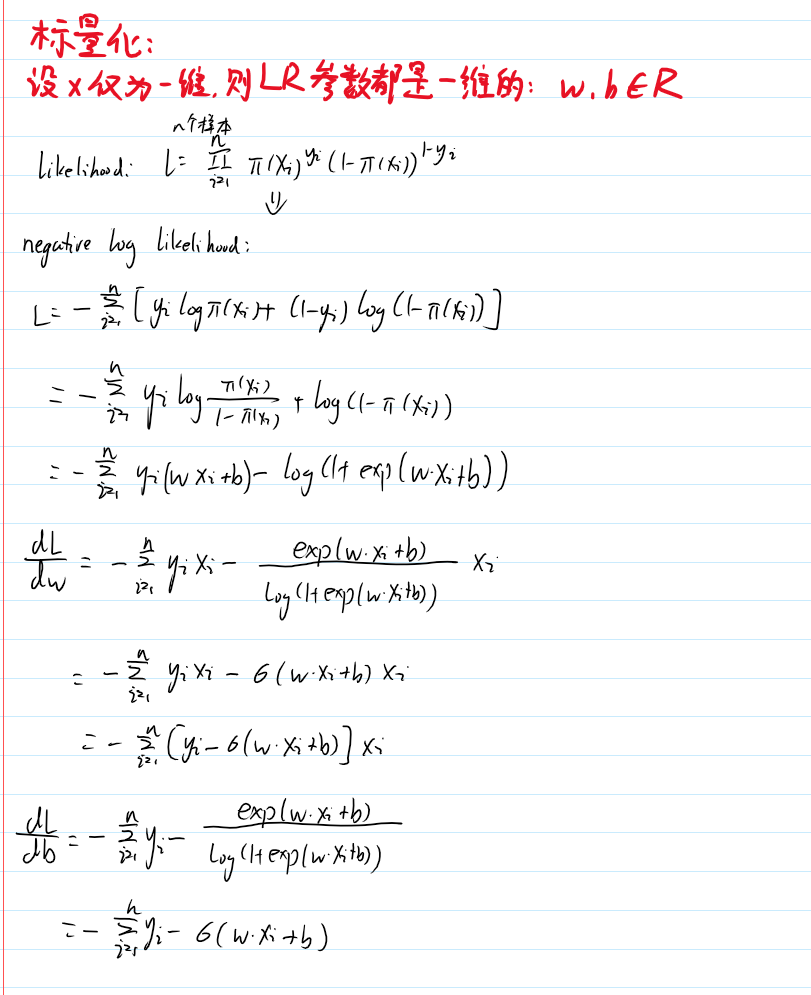 标量化：
设 x 仅为一维，则 LR 参数都是一维的： w, b ∈ R
n个样本
Likelihood: L = ∏_{i=1}^{n} π(x_i)^{y_i} (1-π(x_i))^{1-y_i}
⇓
negative log likelihood:
L = - ∑_{i=1}^{n} [y_i log π(x_i) + (1-y_i) log (1-π(x_i))]
= - ∑_{i=1}^{n} y_i log \frac{π(x_i)}{1-π(x_i)} + log(1-π(x_i))
= - ∑_{i=1}^{n} y_i(w x_i+b) - log(1+exp(w·x_i+b))
\frac{dL}{dw} = - ∑_{i=1}^{n} y_i x_i - \frac{exp(w·x_i+b)}{log(1+exp(w·x_i+b))} x_i
= - ∑_{i=1}^{n} y_i x_i - σ(w·x_i+b) x_i
= - ∑_{i=1}^{n} [y_i - σ(w·x_i+b)] x_i
\frac{dL}{db} = - ∑_{i=1}^{n} y_i - \frac{exp(w·x_i+b)}{log(1+exp(w·x_i+b))}
= - ∑_{i=1}^{n} y_i - σ(w·x_i+b)